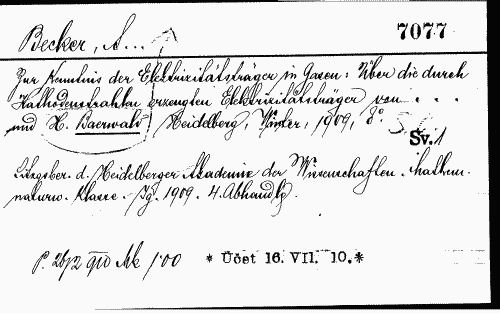 7077
Becker, A...
Zur Kenntnis der Elektrizitätsträger in Gasen: Über die durch
Kathodenstrahlen erzeugten Elektrizitätsträger von . . .
und H. Baerwald Heidelberg, Winter, 1909, 8°
Sv.1
Sitzgsber. d. Heidelberger Akademie der Wissenschaften. Mathem.
naturw. Klasse. Jg. 1909. 4. Abhandlg.
P. 2612 910 Mk 1·00 * Účet 16. VII. 10.*